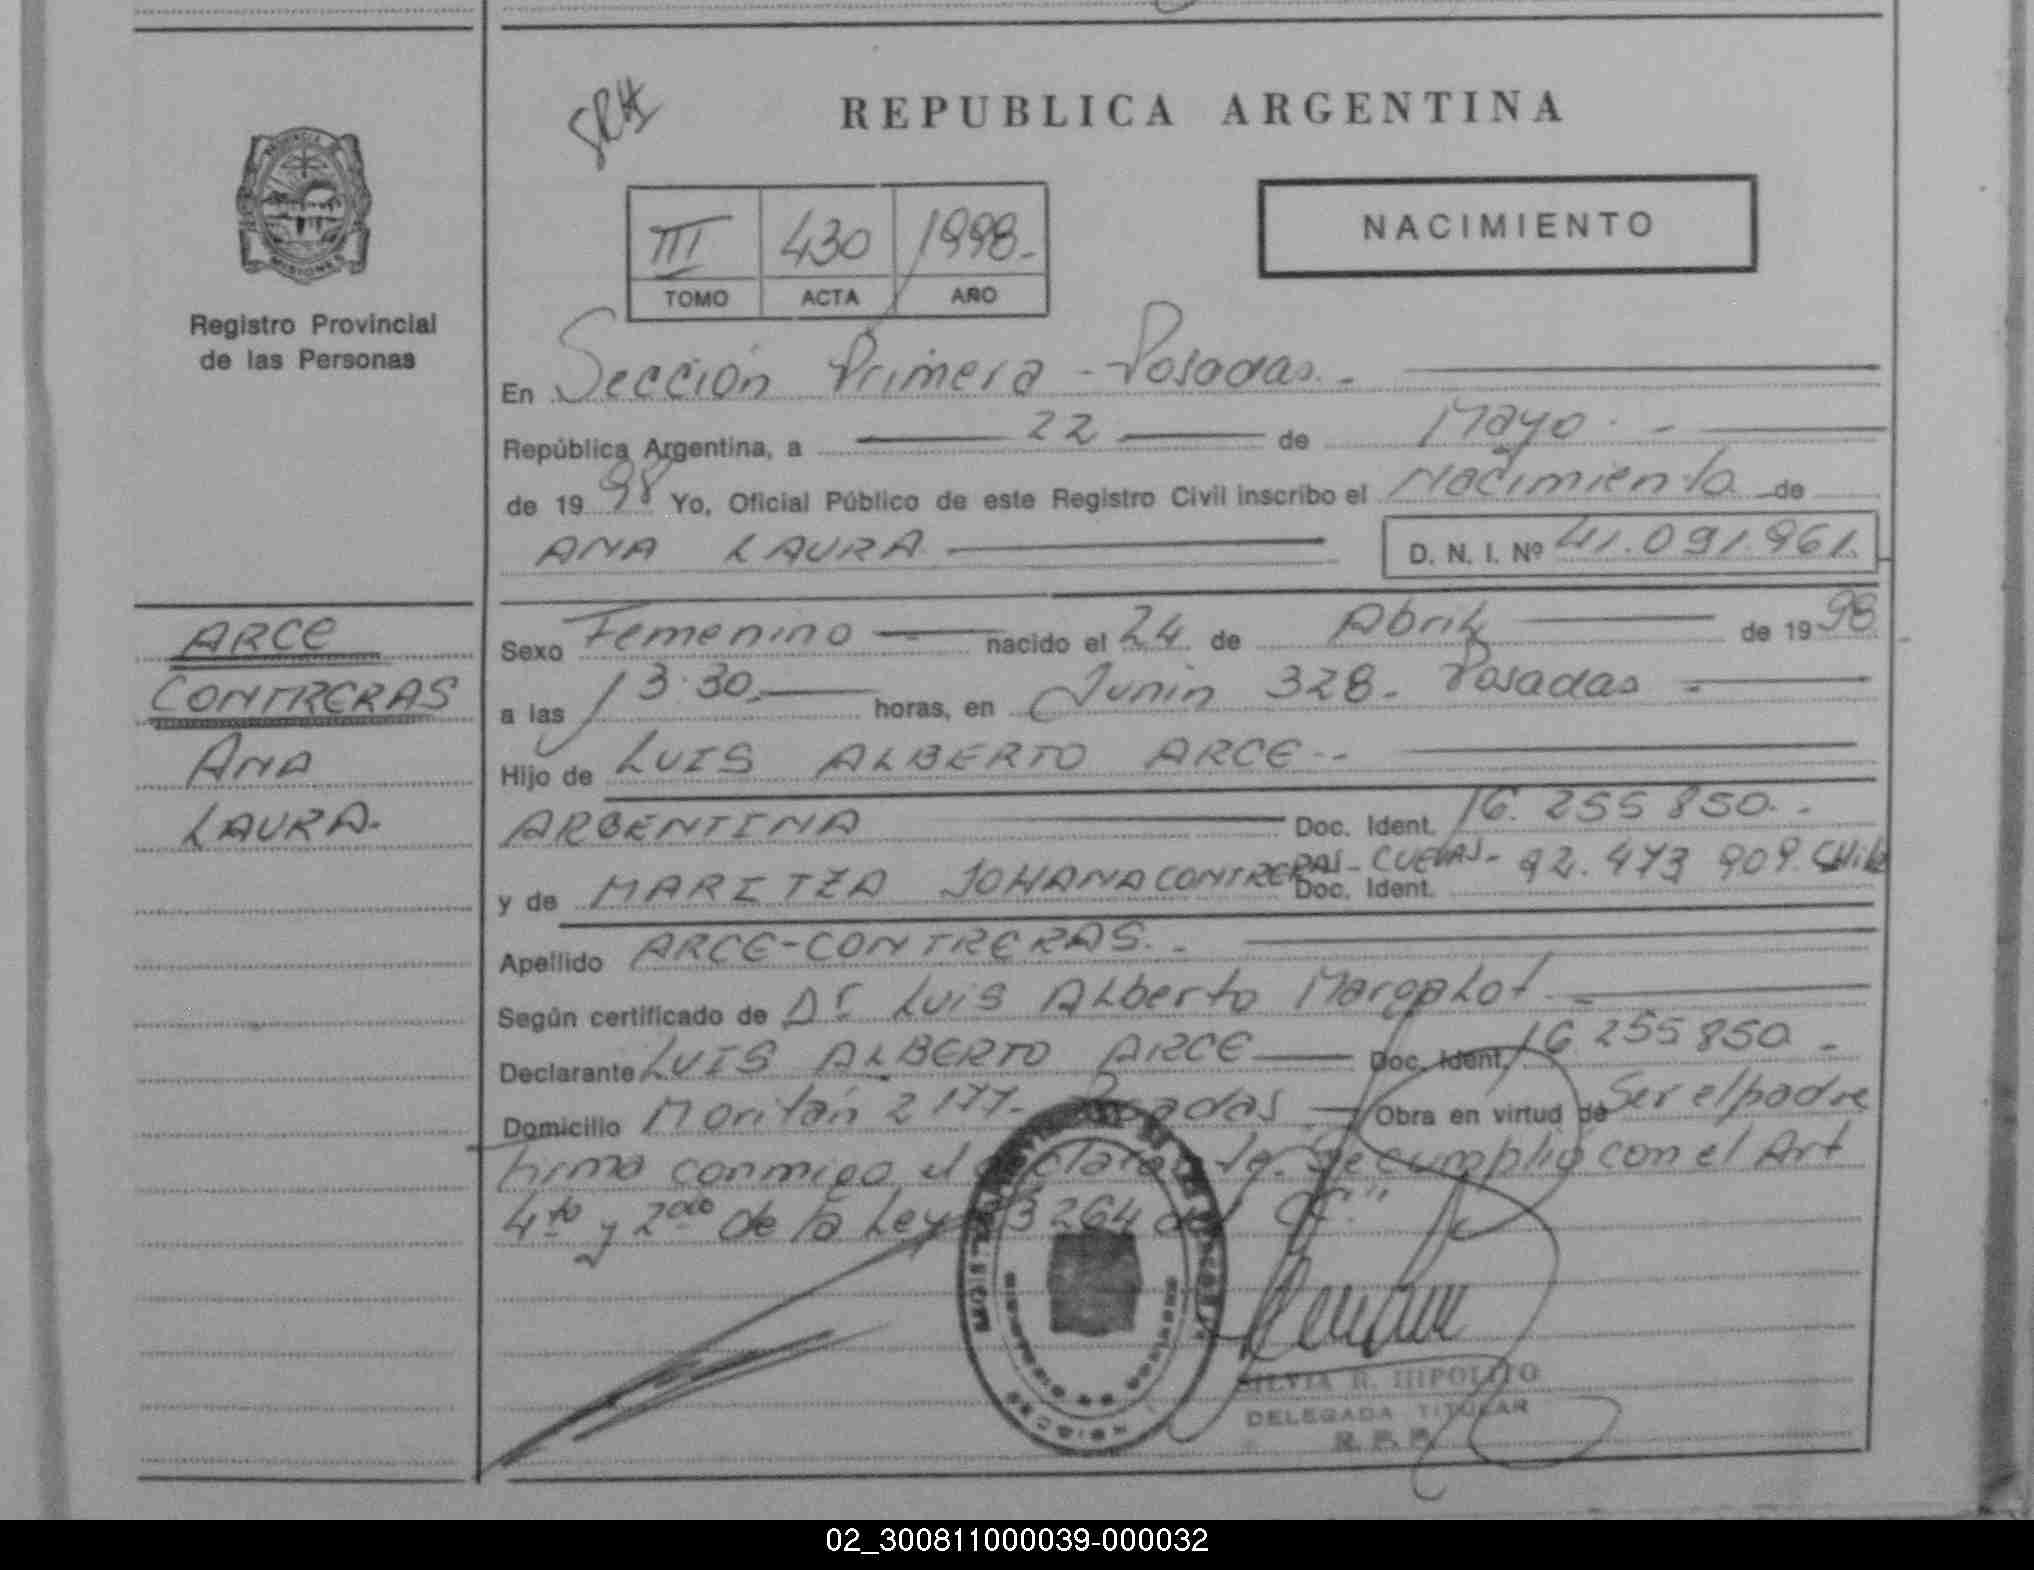 REPUBLICA ARGENTINA
NACIMIENTO
III 430 1998.-
TOMO ACTA AÑO
MISIONES
Registro Provincial
de las Personas
En Sección Primera - Posadas.-
República Argentina, a 22 de Mayo.-
de 1998 Yo, Oficial Público de este Registro Civil inscribo el Nacimiento de
ANA LAURA D. N. I. Nº 41.091.961.
ARCE
CONTRERAS
ANA
LAURA.
Sexo Femenino nacido el 24 de Abril de 1998
a las 13:30.- horas, en Junin 328. Posadas -
Hijo de LUIS ALBERTO ARCE--
ARGENTINA Doc. Ident. 16.255 850.-
y de MARITZA JOHANA CONTRERAS-CUEVAS- Doc. Ident. 92.473 909. Chile
Apellido ARCE-CONTRERAS.-
Según certificado de Dr. Luis Alberto Margalot -
Declarante LUIS ALBERTO ARCE Doc. Ident. 16 255850.-
Domicilio Moritán 2177- Posadas - Obra en virtud de Ser el padre
firma conmigo el declarante. Se cumplió con el Art
4to y 2do de la Ley 23264 del
SILVIA R. HIPOLITO
DELEGADA TITULAR
R. P. P.
02_300811000039-000032